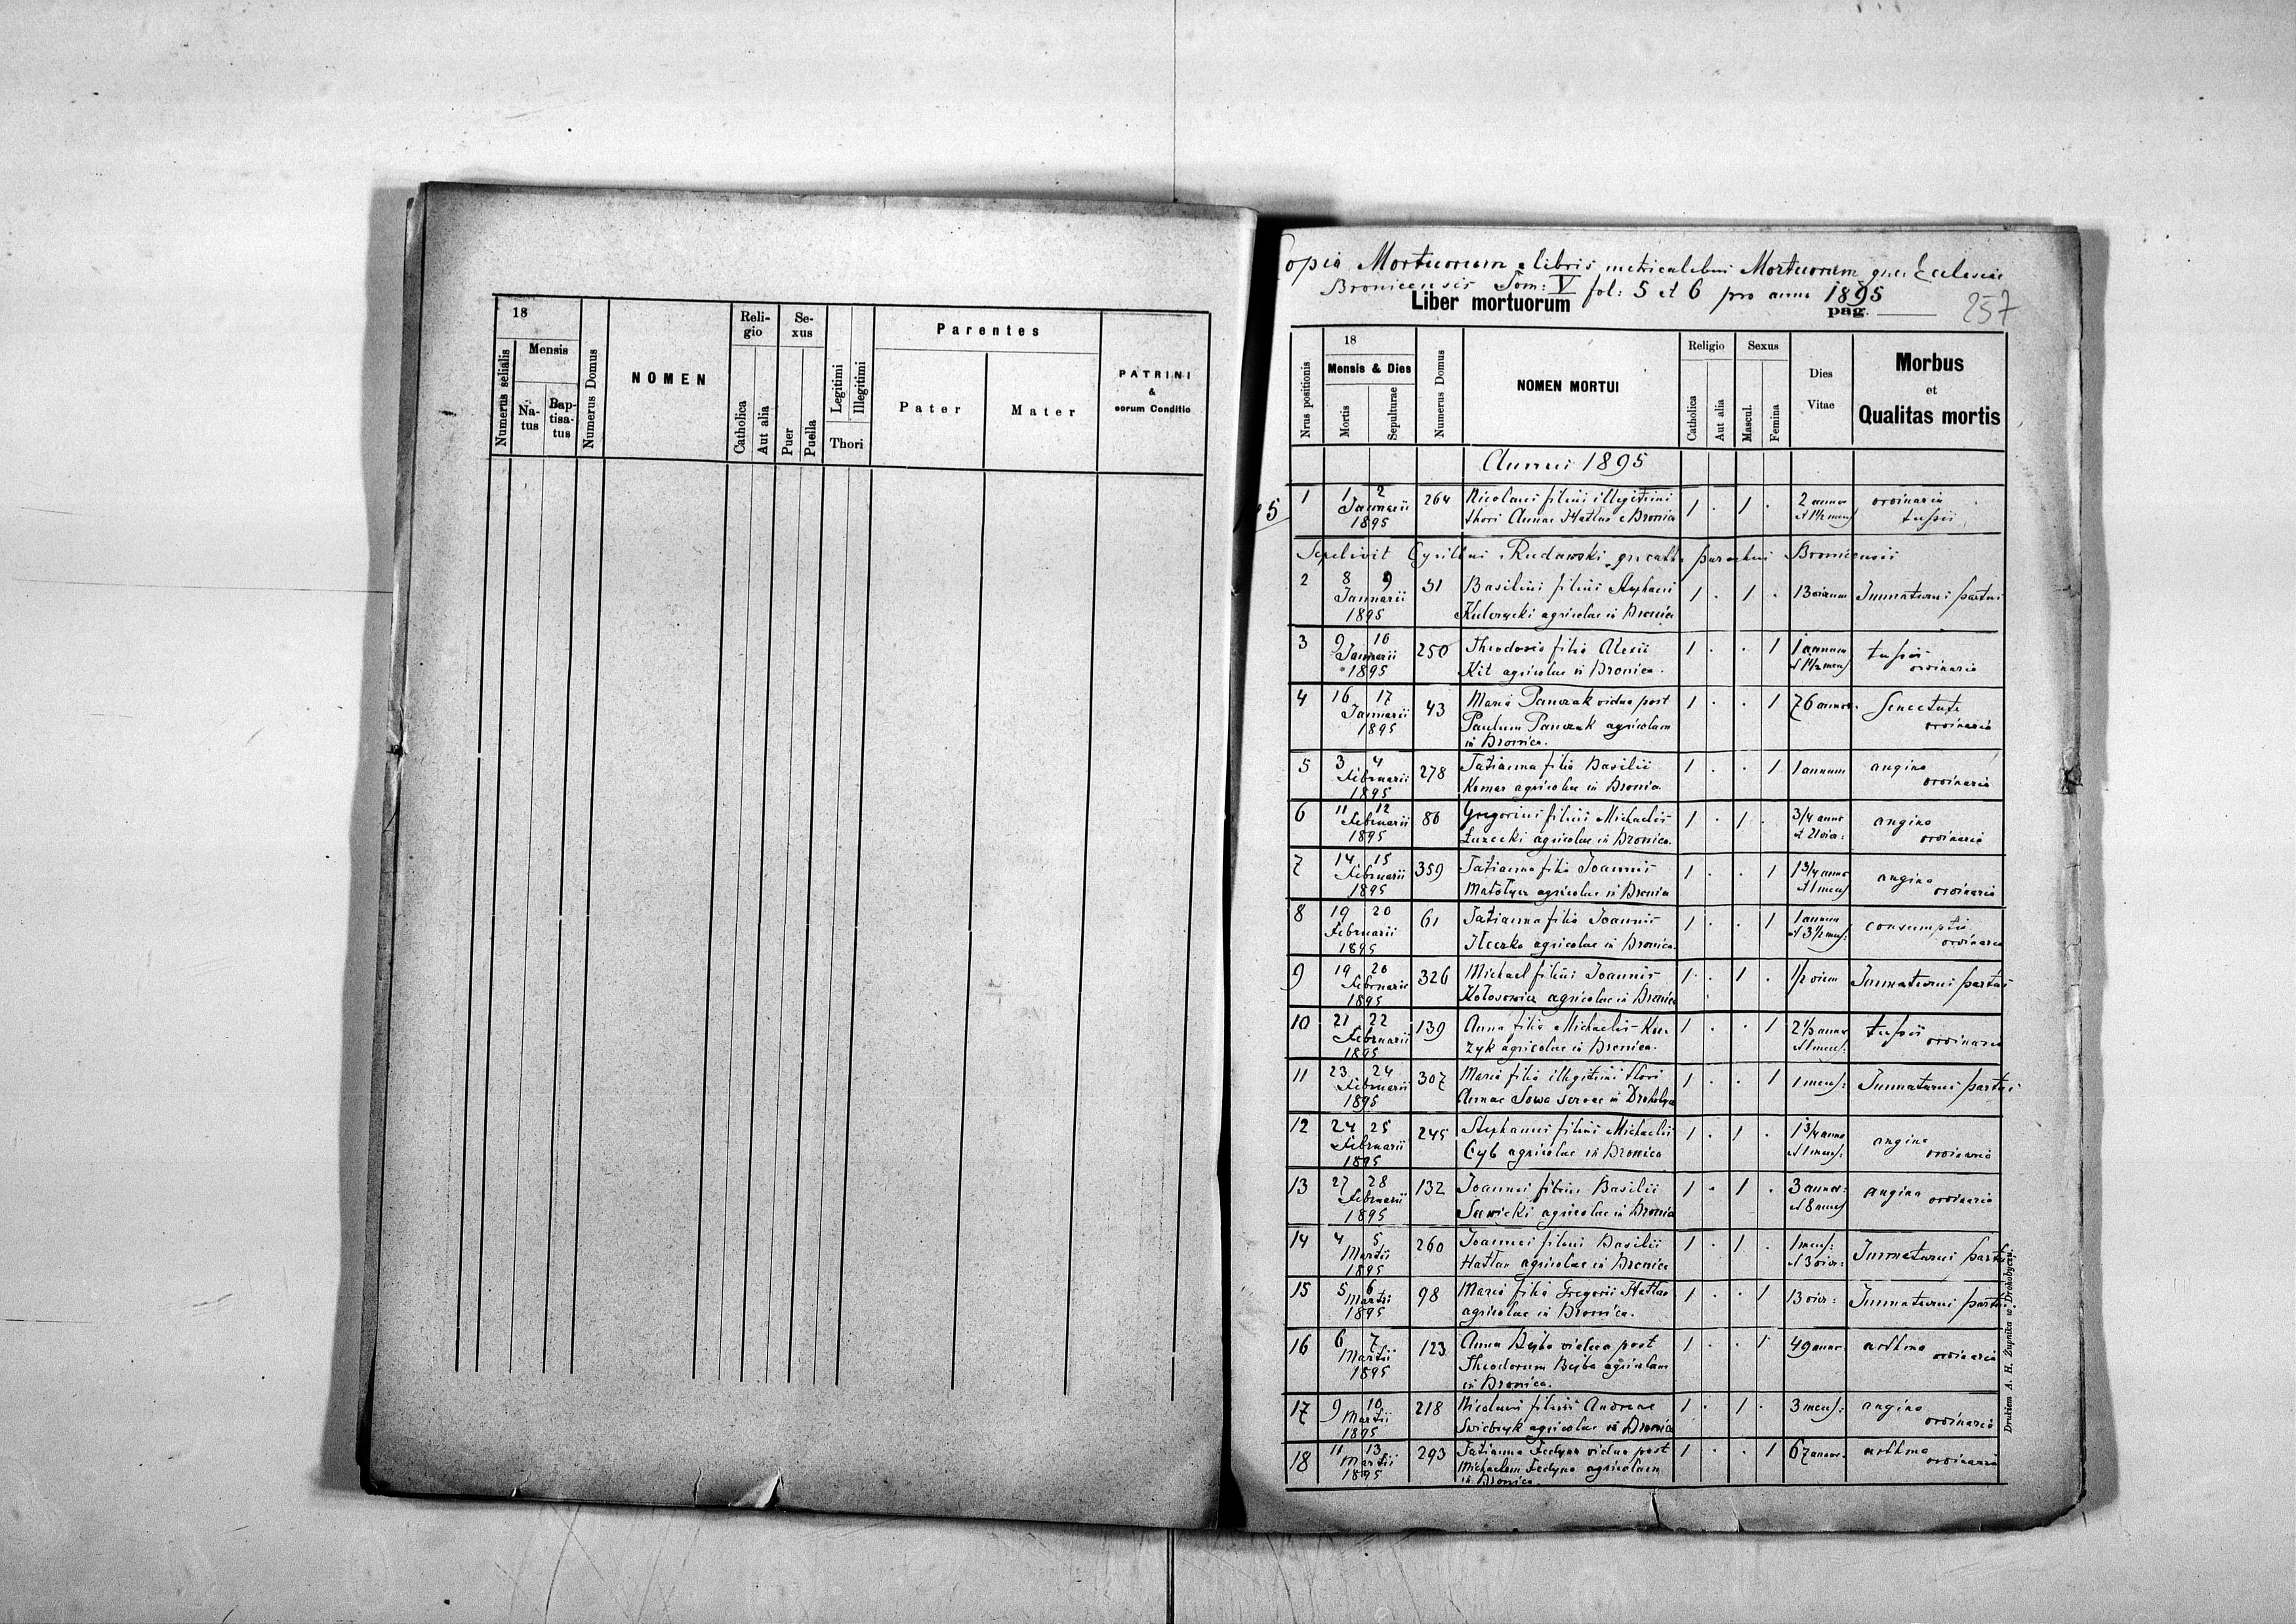 18
Mensis
Numerus serialis
Na-
tus
Bap-
tisa-
tus
Numerus Domus
NOMEN
Reli-
gio
Catholica
Aut alia
Se-
xus
Puer
Puella
Legitimi
Illegitimi
Thori
Parentes
Pater
Mater
PATRINI
&
eorum Conditio
Copia Mortuorum e libris metricalibus Mortuorum Ecclesiae
Bronicensis Tom: V fol: 5 et 6 pro anno 1895
Liber mortuorum
pag.
257
Nrus positionis
18
Mensis & Dies
Mortis
Sepulturae
Numerus Domus
NOMEN MORTUI
Religio
Catholica
Aut alia
Sexus
Mascul.
Femina
Dies
Vitae
Morbus
et
Qualitas mortis
Annus 1895
1 1 2 Januarii 1895 264 Nicolaus filius illegitimi
thori Annae Hatlas e Bronica 1 . 1 . 2 annor et 1 1/2 mens ordinaria
tussis
Sepelivit Cyrillus Rudawski gr. cath. parochus Bronicensis
2 8 9 Januarii 1895 31 Basilius filius Stephani
agricolae in Bronica 1 . 1 . 13 dierum Immaturus partus
3 9 10 Januarii 1895 250 Theodosia filia Alexii
Kit agricolae in Bronica. 1 . . 1 1 annum et 1 1/2 mens tussis
ordinaria
4 16 17 Januarii 1895 43 Maria Panczak vidua post
Paulum Panczak agricolam
in Bronica. 1 . . 1 76 annor. Senectute
ordinaria
5 3 4 Februarii 1895 278 Tatianna filia Basilii
Komar agricolae in Bronica 1 . . 1 1 annum angina
ordinaria
6 11 12 Februarii 1895 86 Gregorius filius Michaelis
Łuzecki agricolae in Bronica. 1 . 1 . 3/4 anni et 21 dier: angina
ordinaria
7 14 15 Februarii 1895 359 Tatianna filia Joannis
Matołycz agricolae in Bronica 1 . . 1 1 3/4 anno et 1 mens angina
ordinaria
8 19 20 Februarii 1895 61 Tatianna filia Joannis
Ileczko agricolae in Bronica. 1 . . 1 1 annum et 3 1/2 mens: consumptio
ordinaria
9 19 20 Februarii 1895 326 Michael filius Joannis
Kołosowicz agricolae in Bronica 1 . 1 . 1/2 diem Immaturus partus
10 21 22 Februarii 1895 139 Anna filia Michaelis
agricolae in Bronica. 1 . . 1 2 1/3 annor et 1 mens: tussis ordinaria
11 23 24 Februarii 1895 307 Maria filia illegitimi thori
Annae Sowa servae in Drohobycz 1 . . 1 1 mens: Immaturus partus
12 24 25 Februarii 1895 245 Stephanus filius Michaelis
Cyb agricolae in Bronica 1 . 1 . 1 3/4 anno et 1 mens: angina
ordinaria
13 27 28 Februarii 1895 132 Joannes filius Basilii
Sawicki agricolae in Bronica 1 . 1 . 3 annor: et 8 mens angina ordinaria
14 4 5 Martii 1895 260 Joannes filius Basilii
Hatlas agricolae in Bronica 1 . 1 . 1 mens: et 13 dier: Immaturus partus
15 5 6 Martii 1895 98 Maria filia Gregorii Hatlas
agricolae in Bronica. 1 . . 1 13 dier: Immaturus partus
16 6 7 Martii 1895 123 Anna Bejba vidua post
Theodorum Bejba agricolam
in Bronica. 1 . . 1 49 annor. asthma
ordinaria
17 9 10 Martii 1895 218 Nicolaus filius Andreae
agricolae in Bronica 1 . 1 . 3 mens: angina
ordinaria
18 11 13 Martii 1895 293 Tatianna Fedyna vidua post
Michaelem Fedyna agricolam
in Bronica. 1 . . 1 67 annor. asthma
ordinaria
Drukiem A. H. Żupnika w Drohobyczu.